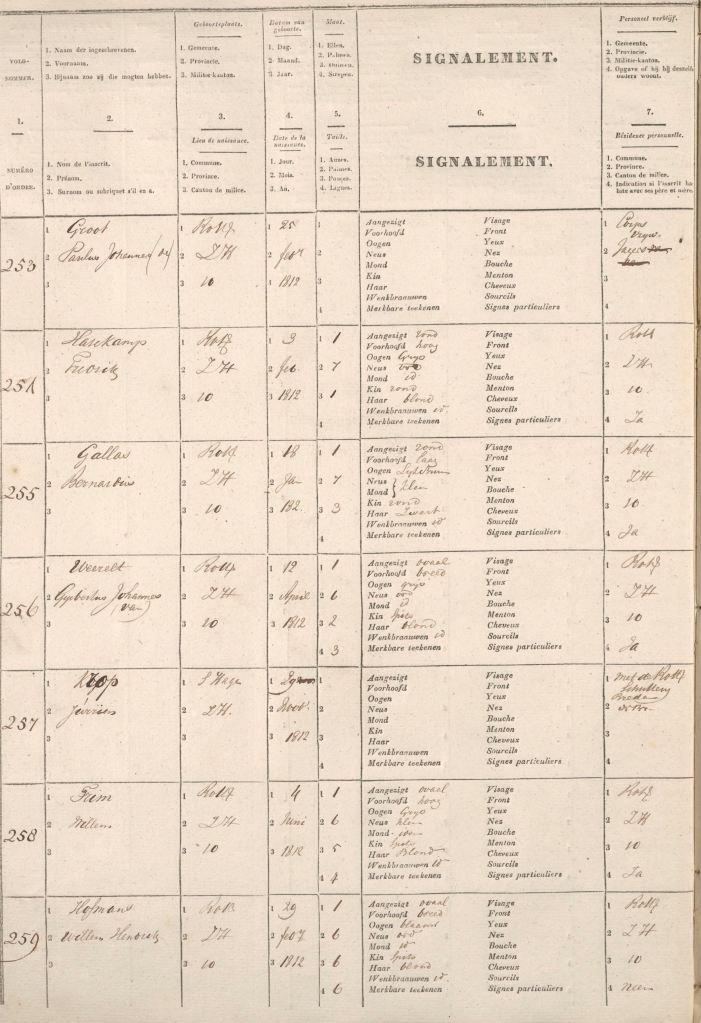 VOLG-
NOMMER.
1.
NUMÉRO
D'ORDRE.
1. Naam der ingeschrevenen.
2. Voornaam.
3. Bijnaam zoo zij die mogten hebben.
2.
1. Nom de l'inscrit.
2. Prénom.
3. Surnom ou sobriquet s'il en a.
Geboorteplaats.
1. Gemeente.
2. Provincie.
3. Militie-kanton.
3.
Lieu de naissance.
1. Commune.
2. Province.
3. Canton de milice.
Datum van
geboorte.
1. Dag.
2. Maand.
3. Jaar.
4.
Date de la
naissance.
1. Jour.
2. Mois.
3. An.
Maat.
1. Ellen.
2. Palmen.
3. Duimen.
4. Strepen.
5.
Taille.
1. Aunes.
2. Palmes.
3. Pouces.
4. Lignes.
SIGNALEMENT.
6.
SIGNALEMENT.
Personeel verblijf.
1. Gemeente.
2. Provincie.
3. Militie-kanton.
4. Opgave of hij bij deszelfs
ouders woont.
7.
Résidence personnelle.
1. Commune.
2. Province.
3. Canton de milice.
4. Indication si l'inscrit ha-
bite avec ses père et mère.
253
1 Groot
2 Paulus Johannes (de)
3
1 Rott
2 Z H
3 10
1 25
2 feb
3 1812
1
2
3
4
Aangezigt Visage
Voorhoofd Front
Oogen Yeux
Neus Nez
Mond Bouche
Kin Menton
Haar Cheveux
Wenkbraauwen Sourcils
Merkbare teekenen Signes particuliers
1 Corps
2 Jagers
3
4
254
1 Hasekamp
2 Fredrik
3
1 Rott
2 Z H
3 10
1 3
2 feb
3 1812
1 1
2 7
3 1
4
Aangezigt rond Visage
Voorhoofd hoog Front
Oogen Grys Yeux
Neus Nez
Mond id Bouche
Kin rond Menton
Haar blond Cheveux
Wenkbraauwen id. Sourcils
Merkbare teekenen Signes particuliers
1 Rott
2 Z H.
3 10.
4 Ja
255
1 Gallas
2 Bernardus
3
1 Rott
2 Z H
3 10
1 18
2 Jan
3 182
1 1
2 7
3 3
4
Aangezigt rond Visage
Voorhoofd laag Front
Oogen Yeux
Neus Nez
Mond } klein Bouche
Kin rond Menton
Haar Zwart Cheveux
Wenkbraauwen id Sourcils
Merkbare teekenen Signes particuliers
1 Rott
2 Z H
3 10
4 Ja
256
1 Weerelt
2 Gysbertus Johannes
(van)
3
1 Rott
2 Z H
3 10
1 12
2 April
3 1812
1 1
2 6
3 2
4 3
Aangezigt ovaal Visage
Voorhoofd breed Front
Oogen grys Yeux
Neus ord Nez
Mond id Bouche
Kin spits Menton
Haar blond Cheveux
Wenkbraauwen id Sourcils
Merkbare teekenen Signes particuliers
1 Rott
2 Z H
3 10
4 Ja
257
1 Krop
2
3
1 S Hage
2 Z H.
3
1 29
2 Novb.
3 1812
1
2
3
4
Aangezigt Visage
Voorhoofd Front
Oogen Yeux
Neus Nez
Mond Bouche
Kin Menton
Haar Cheveux
Wenkbraauwen Sourcils
Merkbare teekenen Signes particuliers
1 met de Rott
Schuttery
2 Breda
3
4
258
1
2 Willem
3
1 Rott
2 Z H
3 10
1 4
2 Juni
3 1812
1 1
2 6
3 5
4 4
Aangezigt ovaal Visage
Voorhoofd hoog Front
Oogen Grys Yeux
Neus klein Nez
Mond Bouche
Kin spits Menton
Haar Blond Cheveux
Wenkbraauwen id Sourcils
Merkbare teekenen Signes particuliers
1 Rott
2 Z H
3 10
4 Ja
259
1 Hofmans
2 Willem Hendrik
3
1 Rott
2 Z H
3 10
1 29
2 feb
3 1812
1 1
2 6
3 6
4 6
Aangezigt ovaal Visage
Voorhoofd breed Front
Oogen blaauw Yeux
Neus ord Nez
Mond id Bouche
Kin spits Menton
Haar blond Cheveux
Wenkbraauwen id. Sourcils
Merkbare teekenen Signes particuliers
1 Rott
2 Z H
3 10
4 neen